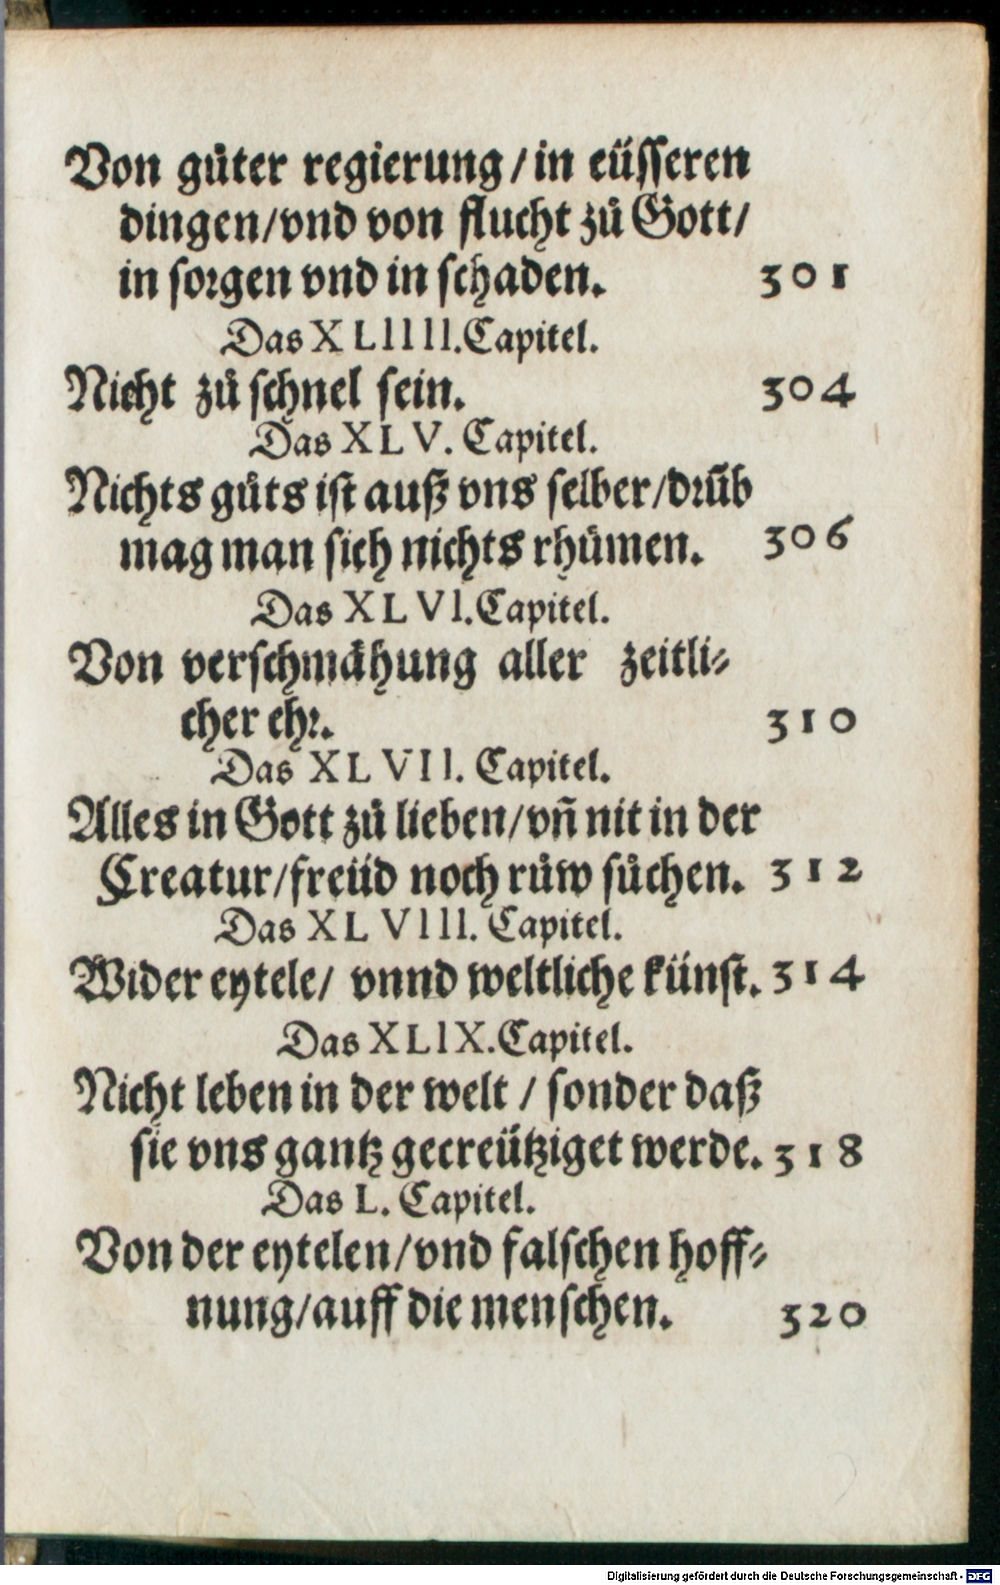 Von gůter regierung/in eüsseren
dingen/vnd von flucht zů Gott/
in sorgen vnd in schaden. 301
Das XLIIII.Capitel.
Nicht zů schnel sein. 304
Das XLV. Capitel.
Nichts gůts ist auß vns selber/drüb
mag man sich nichts rhümen. 306
Das XLVI.Capitel.
Von verschmähung aller zeitli-
cher ehr. 310
Das XLVII. Capitel.
Alles in Gott zů lieben/vñ nit in der
Creatur/freüd noch růw sůchen. 312
Das XLVIII. Capitel.
Wider eytele/ vnnd weltliche künst. 314
Das XLIX.Capitel.
Nicht leben in der welt / sonder daß
sie vns gantz gecreütziget werde. 318
Das L. Capitel.
Von der eytelen/vnd falschen hoff-
nung/auff die menschen. 320
Digitalisierung gefördert durch die Deutsche Forschungsgemeinschaft - DFG